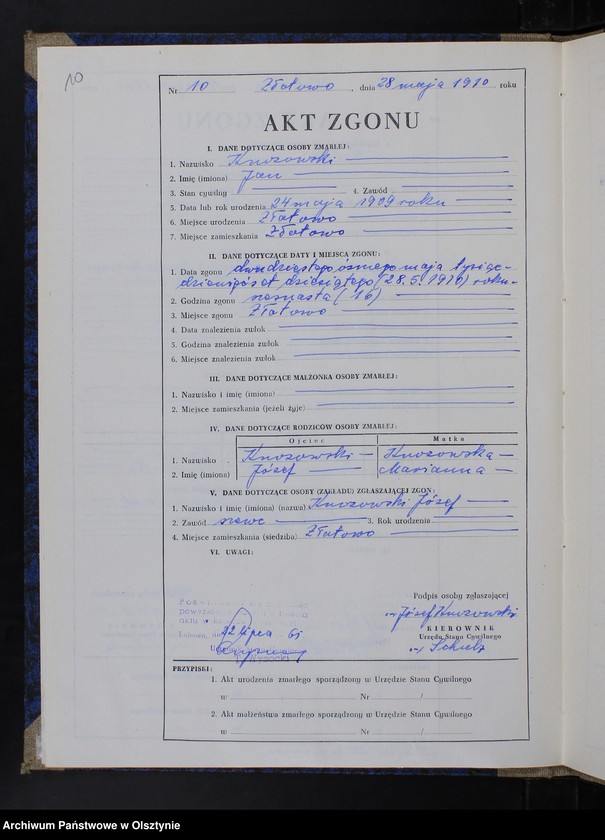 10
Nr 10 Złotowo, dnia 28 maja 1910 roku
AKT ZGONU
I. DANE DOTYCZĄCE OSOBY ZMARŁEJ:
1. Nazwisko Knozowski
2. Imię (imiona) Jan
3. Stan cywilny 4. Zawód
5. Data lub rok urodzenia 24 maja 1909 roku
6. Miejsce urodzenia Złotowo
7. Miejsce zamieszkania Złotowo
II. DANE DOTYCZĄCE DATY I MIEJSCA ZGONU:
1. Data zgonu dwudziestego ósmego maja tysiąc-
dziewięćset dziesiątego (28.5.1910) roku
2. Godzina zgonu (16)
3. Miejsce zgonu Złotowo
4. Data znalezienia zwłok
5. Godzina znalezienia zwłok
6. Miejsce znalezienia zwłok
III. DANE DOTYCZĄCE MAŁŻONKA OSOBY ZMARŁEJ:
1. Nazwisko i imię (imiona)
2. Miejsce zamieszkania (jeżeli żyje)
IV. DANE DOTYCZĄCE RODZICÓW OSOBY ZMARŁEJ:
Ojciec Matka
1. Nazwisko Knozowski Knozowska
2. Imię (imiona) Józef Marianna
V. DANE DOTYCZĄCE OSOBY (ZAKŁADU) ZGŁASZAJĄCEJ ZGON:
1. Nazwisko i imię (imiona) (nazwa) Knozowski Józef
2. Zawód szewc 3. Rok urodzenia
4. Miejsce zamieszkania (siedziba) Złotowo
VI. UWAGI:
Podpis osoby zgłaszającej
-/Józef Knozowski
KIEROWNIK
Urzędu Stanu Cywilnego
-/
lipca 61
PRZYPISKI:
1. Akt urodzenia zmarłego sporządzony w Urzędzie Stanu Cywilnego
w Nr /
2. Akt małżeństwa zmarłego sporządzony w Urzędzie Stanu Cywilnego
w Nr /
Archiwum Państwowe w Olsztynie